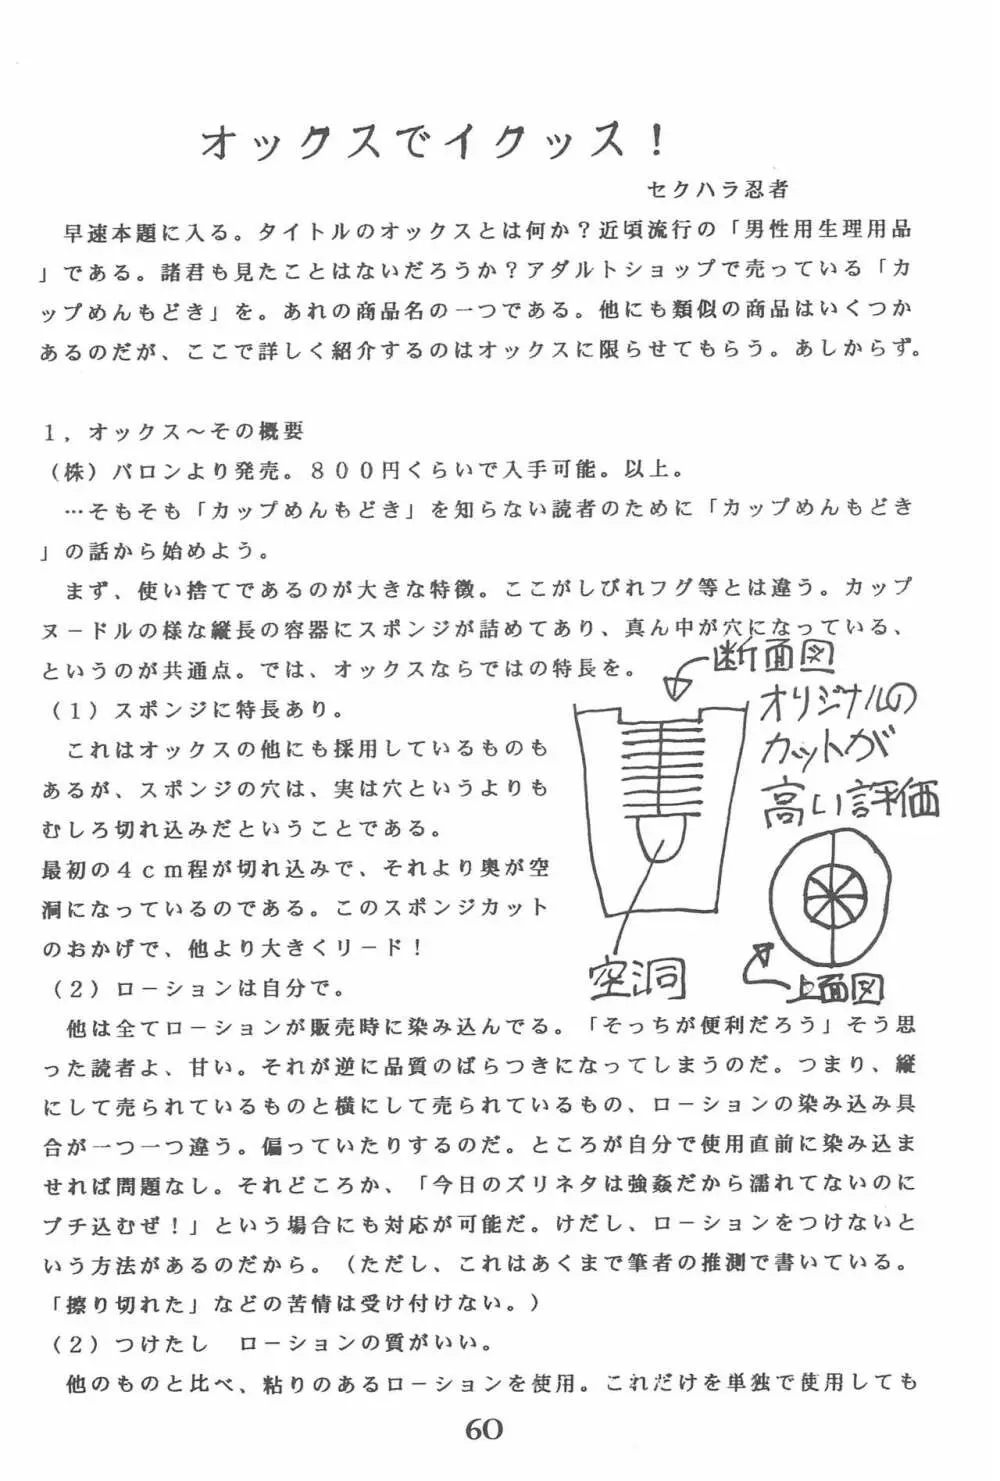 オックスでイクッス！
セクハラ忍者
早速本題に入る。タイトルのオックスとは何か？近頃流行の「男性用生理用品
」である。諸君も見たことはないだろうか？アダルトショップで売っている「カ
ップめんもどき」を。あれの商品名の一つである。他にも類似の商品はいくつか
あるのだが、ここで詳しく紹介するのはオックスに限らせてもらう。あしからず。
１，オックス～その概要
（株）バロンより発売。８００円くらいで入手可能。以上。
…そもそも「カップめんもどき」を知らない読者のために「カップめんもどき
」の話から始めよう。
まず、使い捨てであるのが大きな特徴。ここがしびれフグ等とは違う。カップ
ヌードルの様な縦長の容器にスポンジが詰めてあり、真ん中が穴になっている、
というのが共通点。では、オックスならではの特長を。
断面図
オリジナルの
カットが
高い評価
空洞
上面図
（１）スポンジに特長あり。
これはオックスの他にも採用しているものも
あるが、スポンジの穴は、実は穴というよりも
むしろ切れ込みだということである。
最初の４ｃｍ程が切れ込みで、それより奥が空
洞になっているのである。このスポンジカット
のおかげで、他より大きくリード！
（２）ローションは自分で。
他は全てローションが販売時に染み込んでる。「そっちが便利だろう」そう思
った読者よ、甘い。それが逆に品質のばらつきになってしまうのだ。つまり、縦
にして売られているものと横にして売られているもの、ローションの染み込み具
合が一つ一つ違う。偏っていたりするのだ。ところが自分で使用直前に染み込ま
せれば問題なし。それどころか、「今日のズリネタは強姦だから濡れてないのに
ブチ込むぜ！」という場合にも対応が可能だ。けだし、ローションをつけないと
いう方法があるのだから。（ただし、これはあくまで筆者の推測で書いている。
「擦り切れた」などの苦情は受け付けない。）
（２）つけたし　ローションの質がいい。
他のものと比べ、粘りのあるローションを使用。これだけを単独で使用しても
60